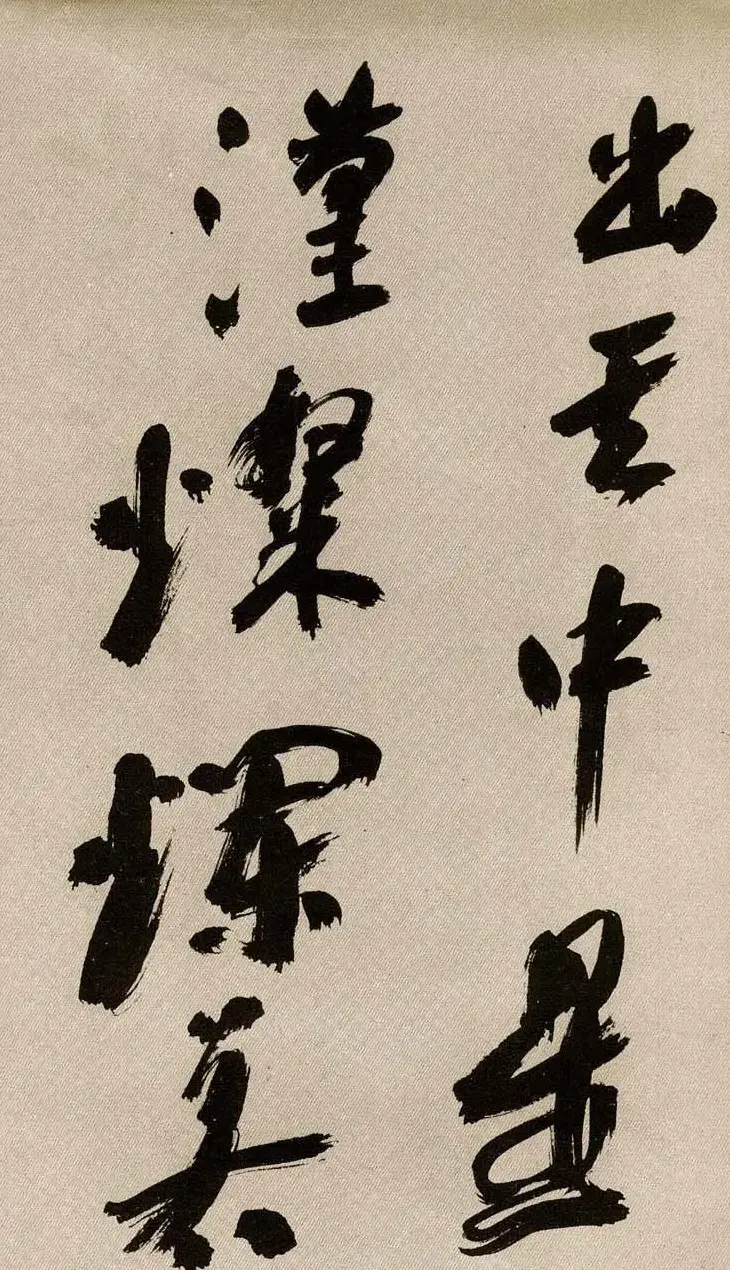 出其中星
漢燦爛若